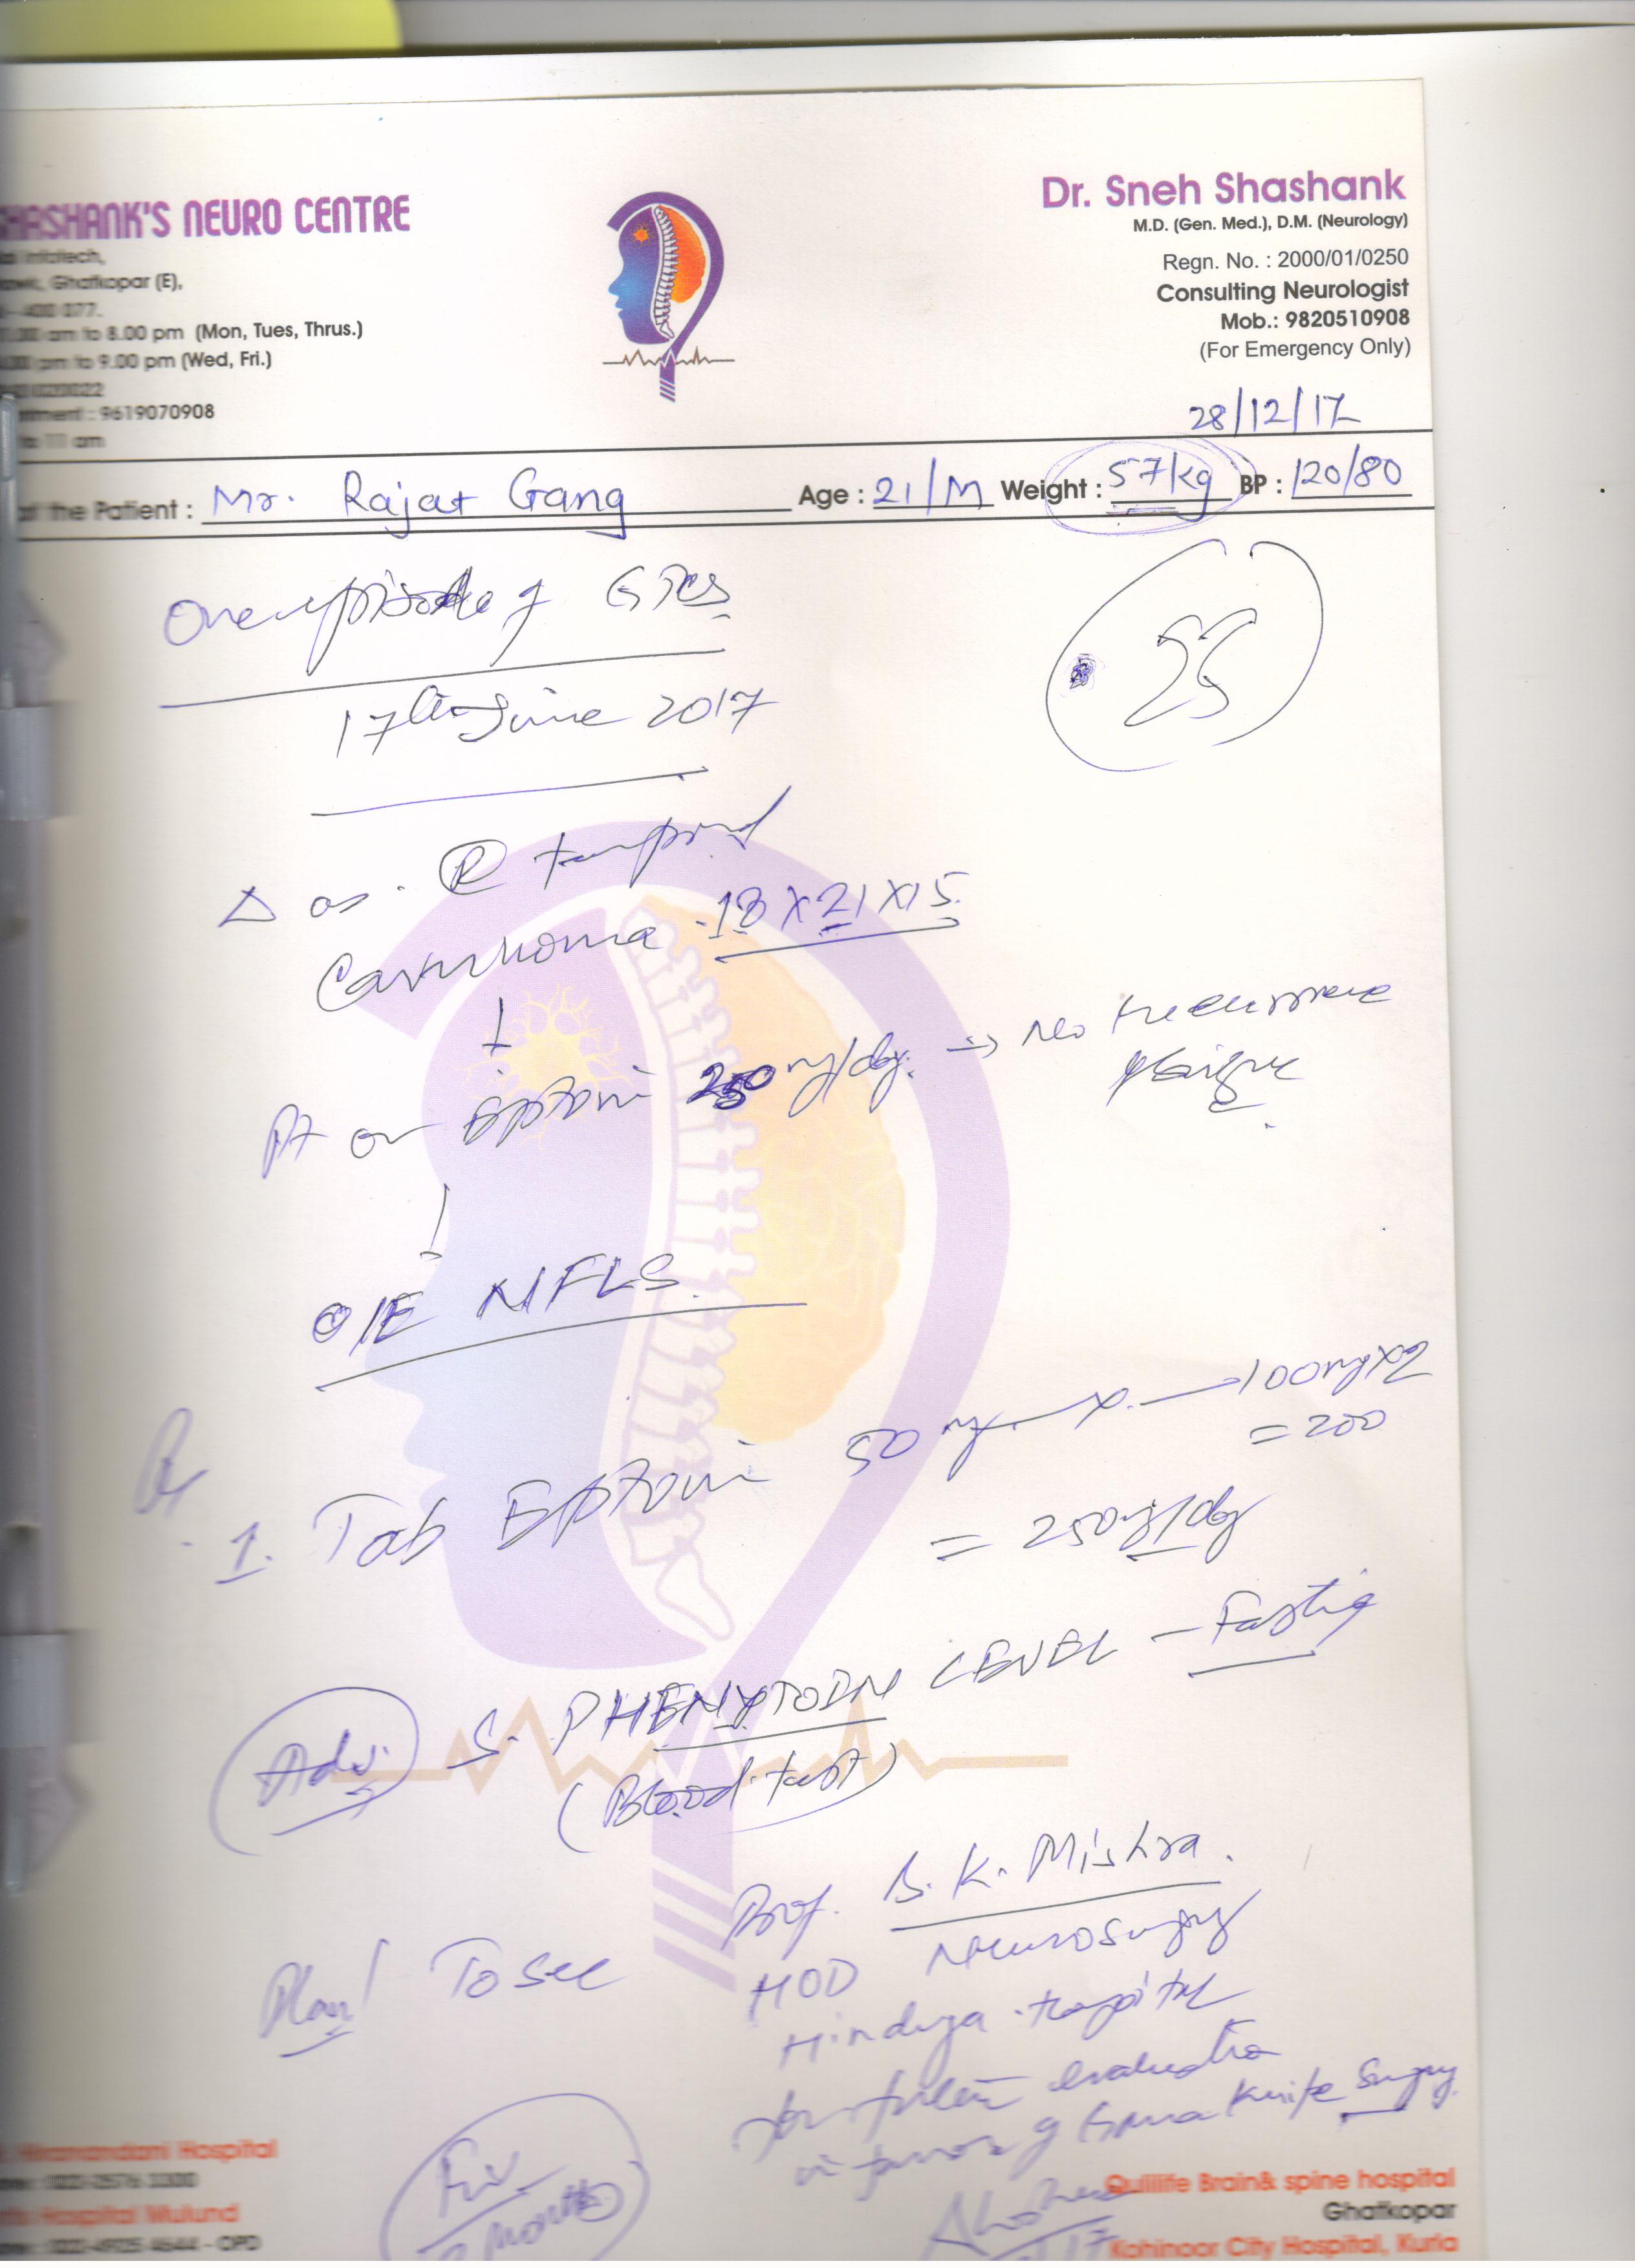 SHASHANK'S NEURO CENTRE
Infotech,
Ghatkopar (E),
- 400 077.
am to 8.00 pm (Mon, Tues, Thrus.)
pm to 9.00 pm (Wed, Fri.)
: 9619070908
to 11 am
Dr. Sneh Shashank
M.D. (Gen. Med.), D.M. (Neurology)
Regn. No. : 2000/01/0250
Consulting Neurologist
Mob.: 9820510908
(For Emergency Only)
28/12/17
the Patient : Mr. Rajat Gang Age : 21/M Weight : 57kg BP : 120/80
One episode of GTCS
25
17th June 2017
Δ as. R temporal
Cavernoma 18 x 21 x 15
Pt on Eptoin 250 mg/day. → No recurrence
O/E NFLS
Rx
1. Tab Eptoin 50 mg x 100mg x 2
= 200
= 250mg/day
Adv. S. PHENYTOIN LEVEL - Fasting
(Blood test)
Plan! To see Prof. B. K. Mishra.
HOD Neurosurgery
Hinduja Hospital
for further evaluation
in favor of Gamma Knife Surgery
Hiranandani Hospital
Hospital Mulund
- OPD
Brain& spine hospital
Ghatkopar
Kohinoor City Hospital, Kurla